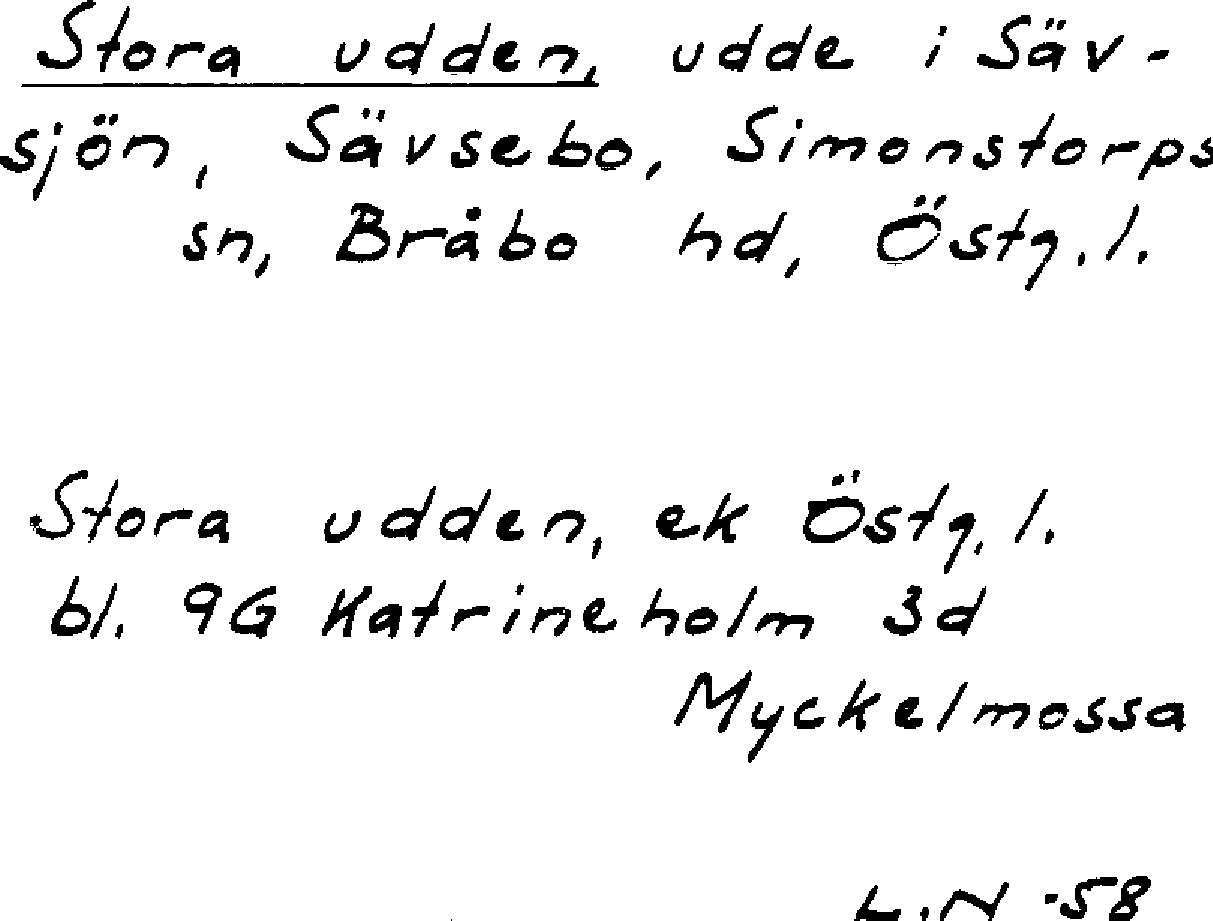 Stora udden, udde i Säv-
sjön, Sävsebo, Simonstorps
sn, Bråbo hd, Östg.l.
Stora udden, ek Östg.l.
bl. 9G Katrineholm 3d
Myckelmossa
L.N -58